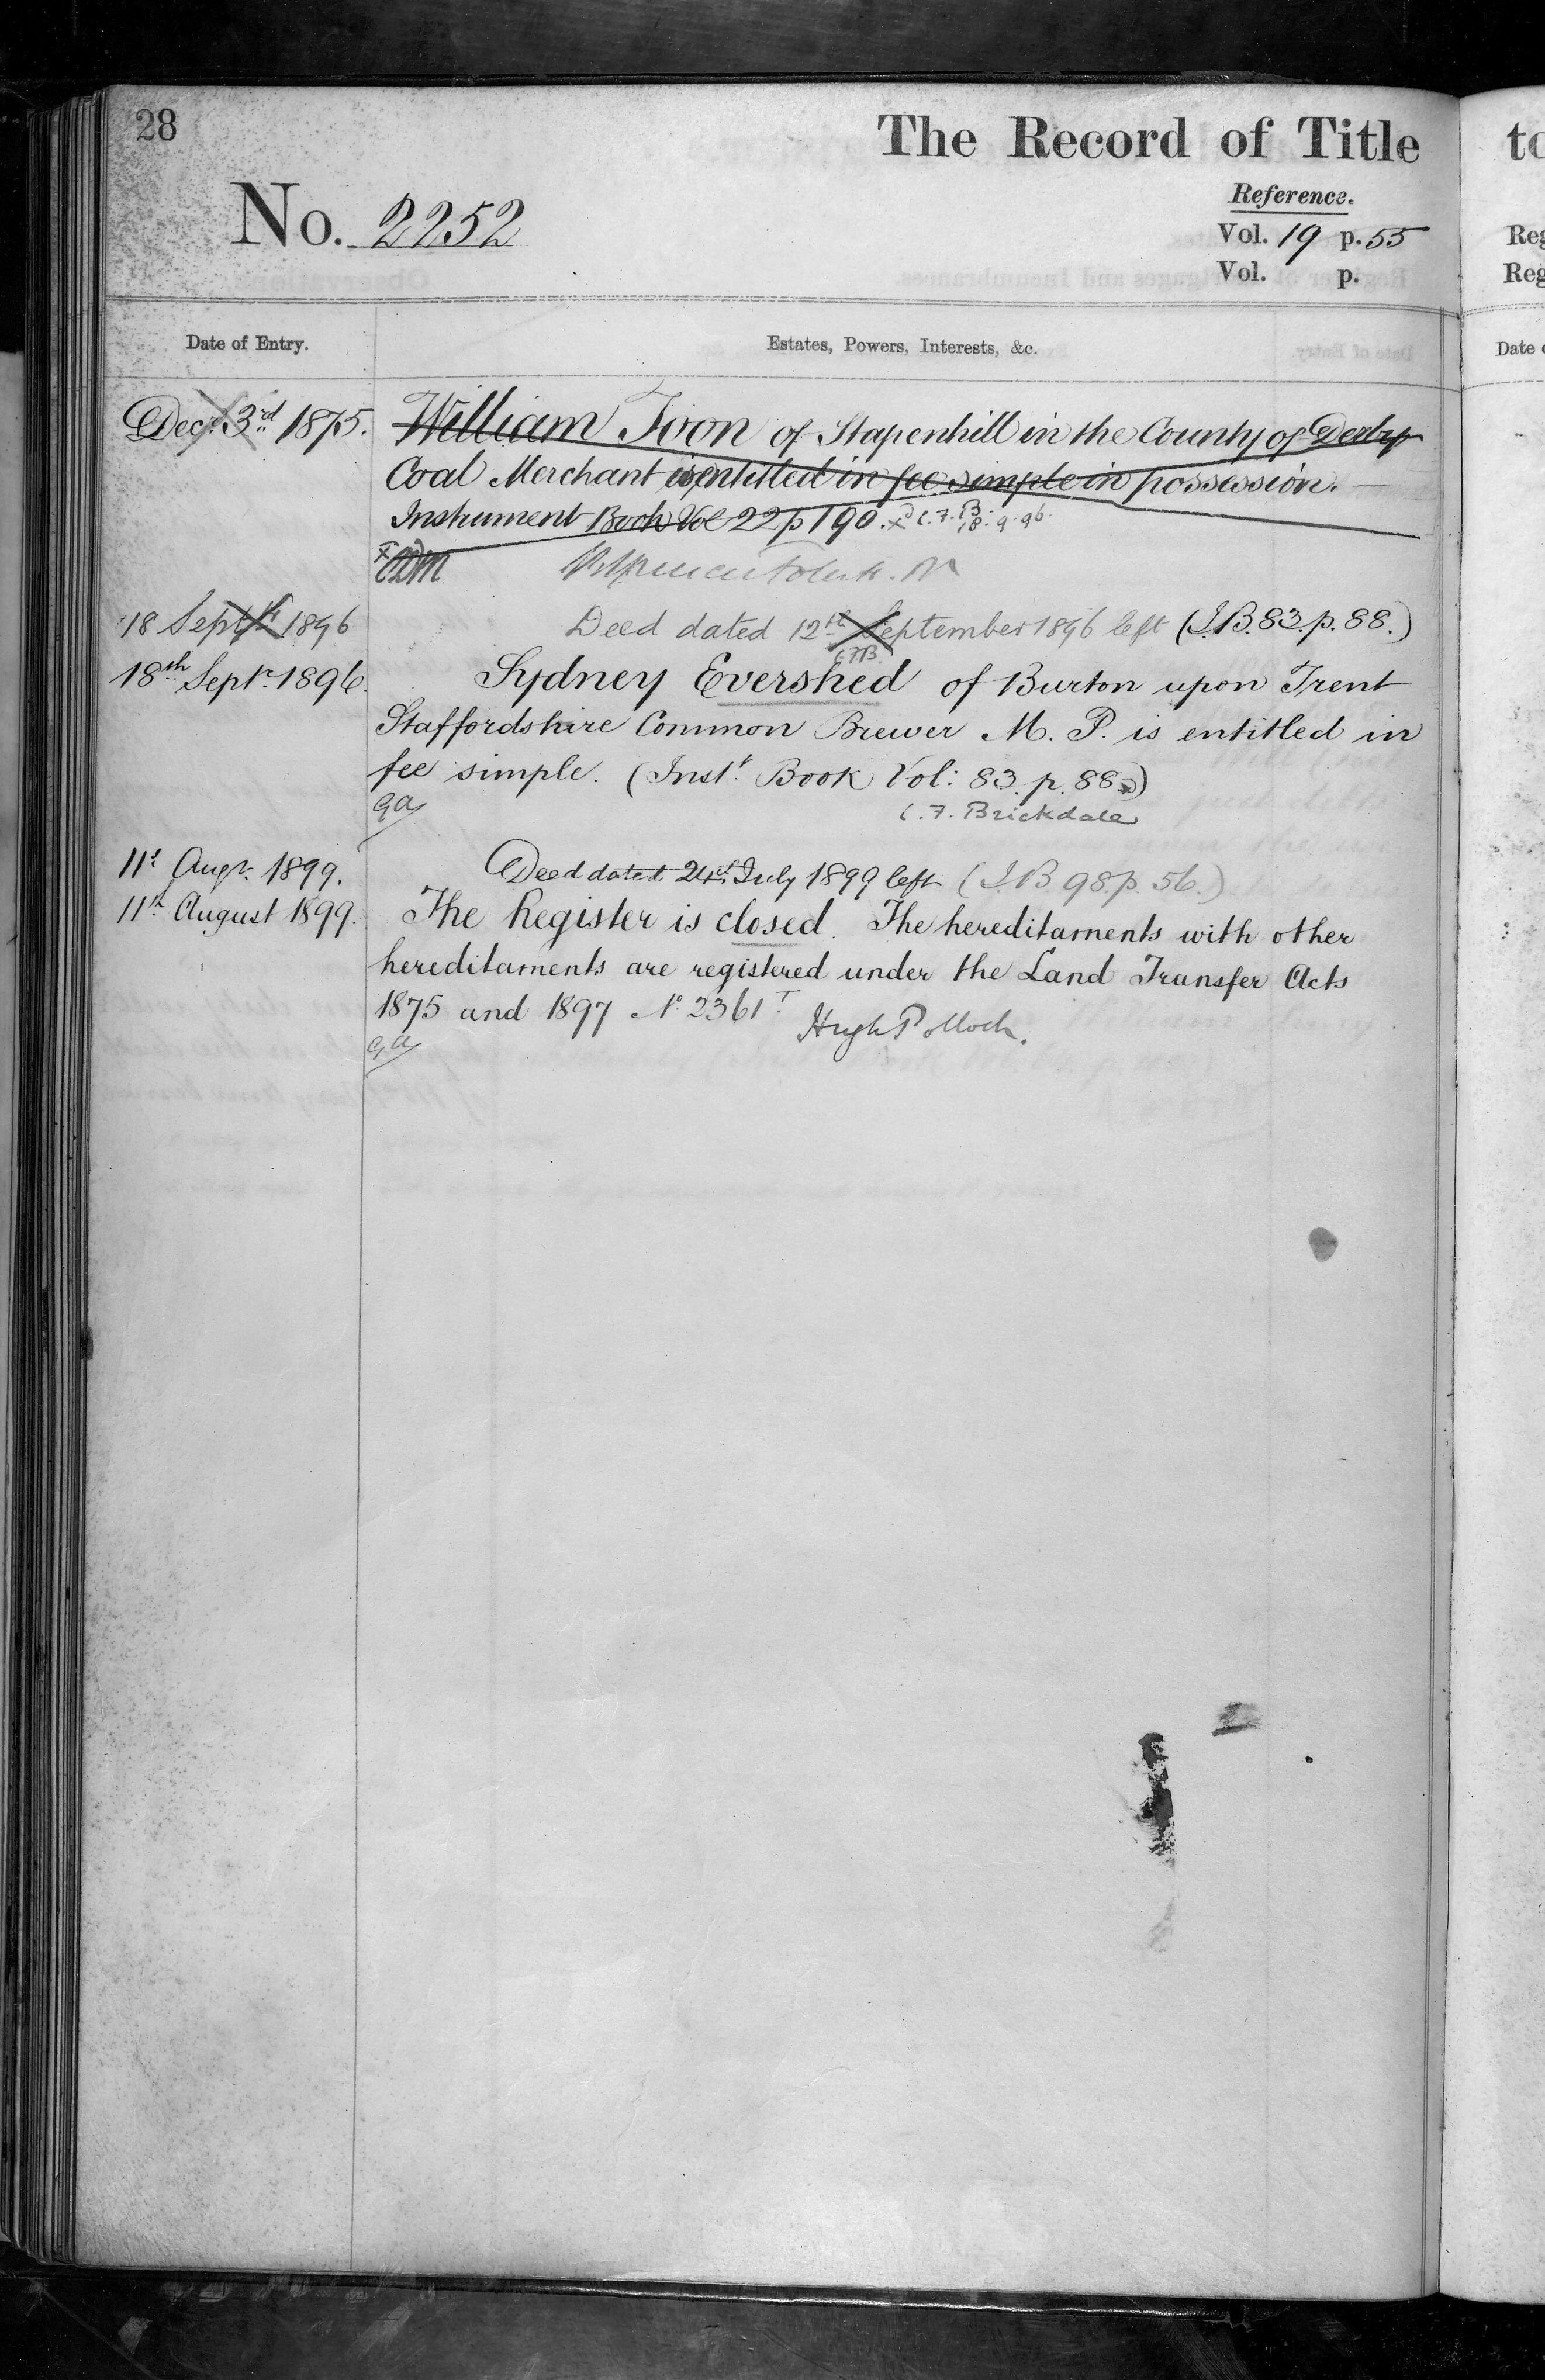 28
The Record of Title
No. 2252
Reference.
Vol. 19 p. 55
Vol. p.
Date of Entry.
Estates, Powers, Interests, &c.
Decr. 3rd 1875.
William Toon of Stapenhill in the County of Derby
Coal Merchant is entitled in fee simple in possession.
Instrument Book Vol 22 p 190. x C.F.B. 18.9.96.
18 Sept 1896
Deed dated 12th September 1896 left (I.B. 83. p. 88.)
C.F.B.
18th Septr. 1896.
Sydney Evershed of Burton upon Trent
Staffordshire Common Brewer M. P. is entitled in
fee simple. (Inst.t Book Vol: 83. p. 88.)
C. F. Brickdale
11th Augt. 1899.
Deed dated 21st July 1899 left (I.B. 98. p. 56.)
11th August 1899.
The Register is closed. The hereditaments with other
hereditaments are registered under the Land Transfer Acts
1875 and 1897 No. 2361
Hugh Pollock.
to
Reg
Reg
Date